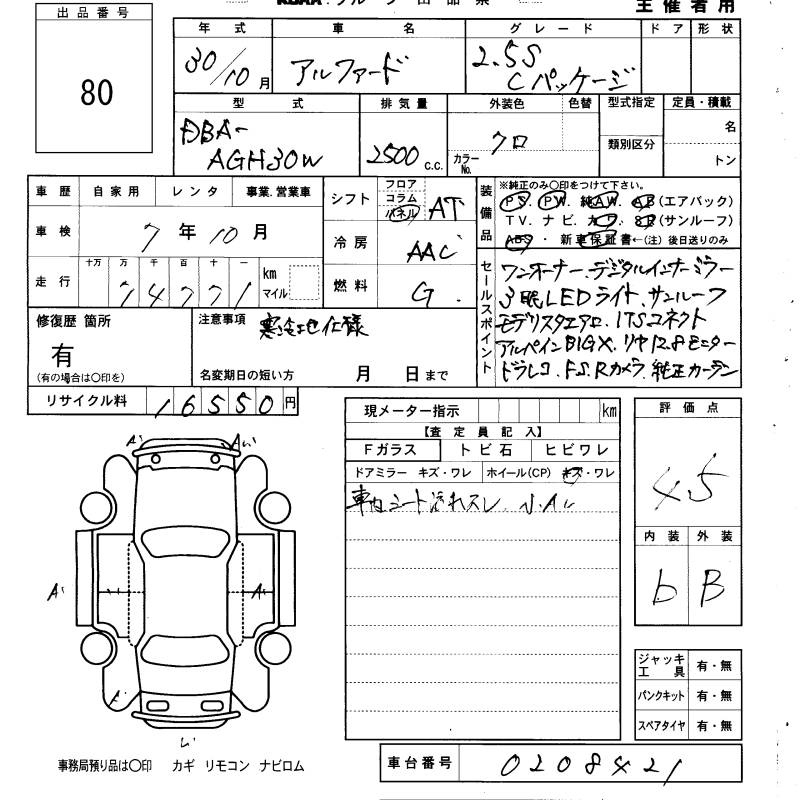 主催者用
出品番号
80
年式 車名 グレード ドア 形状
30/10月 アルファード 2.5S Cパッケージ
型式 排気量 外装色 色替 型式指定 定員・積載
DBA-
AGH30W
2500 c.c.
クロ
カラーNo.
類別区分
名
トン
車歴 自家用 レンタ 事業.営業車
車検 7年10月
走行 十万 万 千 百 十 一
74771 km マイル
シフト フロア コラム パネル AT
冷房 AAC
燃料 G.
装備品
※純正のみ〇印をつけて下さい。
PS. PW. 純AW. AB(エアバック)
TV. ナビ. カワ. SR(サンルーフ)
ABS ・ 新車保証書←(注) 後日送りのみ
セールスポイント
ワンオーナー.デジタルインナーミラー
3眼LEDライト.サンルーフ
モデリスタエアロ.ITSコネクト
アルパインBIGX.リヤ12.8モニター
ドラレコ.F.S.Rカメラ.純正カーテン
修復歴 箇所
有
(有の場合は〇印を)
注意事項 寒冷地仕様
名変期日の短い方 月 日まで
リサイクル料 16550円
現メーター指示 km
【査定員記入】
Fガラス トビ石 ヒビワレ
ドアミラー キズ・ワレ ホイール(CP) キズ・ワレ
車内シート汚れスレ
評価点
4.5
内装 外装
b B
ジャッキ工具 有・無
パンクキット 有・無
スペアタイヤ 有・無
事務局預り品は〇印 カギ リモコン ナビロム
車台番号 0208421